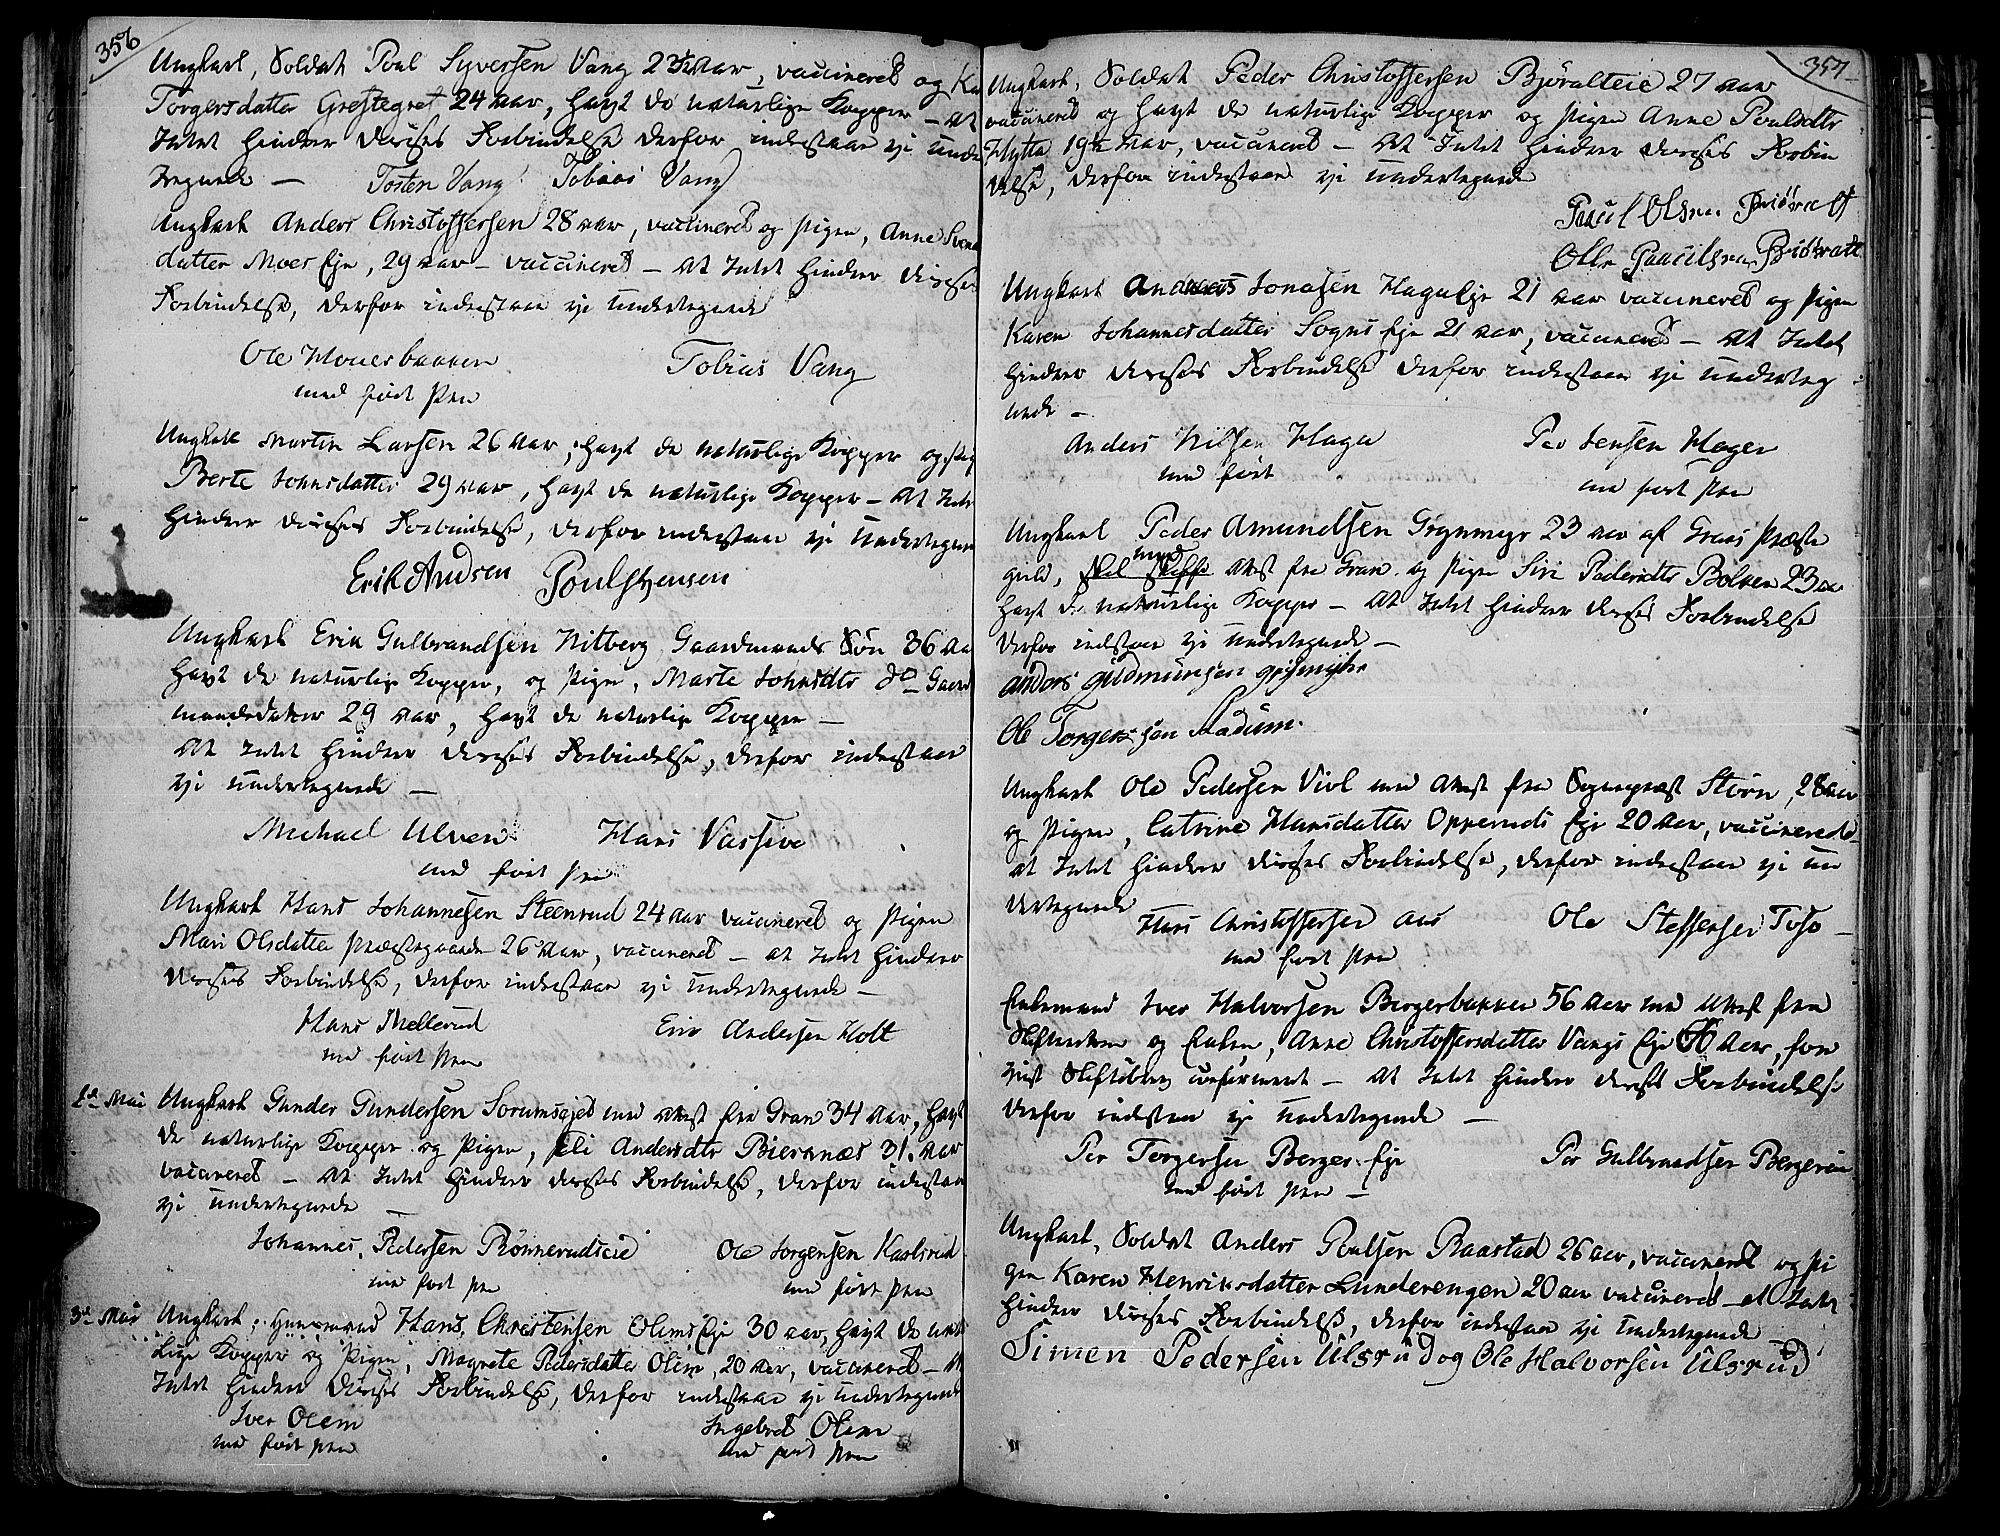 356
Ungkarl, Soldat Poul Syversen Vang 23½ Aar, vaccineret og Ka
Torgersdatter Grestegret 24 Aar, havt de naturlige Kopper – At
Intet hindrer deres Forbindelse derfor indestaae vi Unde
tegnede –
Tosten Vang Tobias Vang
Ungkarl Anders Christoffersen 28 Aar, vaccineret og Pigen, Anne Svend
datter Moes Eje, 29 Aar – vaccineret – At Intet hindrer deres
Forbindelse, derfor indestaae vi Undertegnede
Ole Mouerbakken Tobias Vang
med ført Pen
Ungkarl Martin Larsen 26 Aar, havt de naturlige Kopper og Pig
Berte Johnsdatter 29 Aar, havt de naturlige Kopper – At Intet
hindrer deres Forbindelse, derfor indestaae vi Undertegne
Erik Andsen Poul Svensen
Ungkarl Erik Gulbrandsen Nitberg Gaardmands Søn 36 Aa
havt de naturlige Kopper, og Pigen, Marte Johnsdtr do Gaard
mandsdatter 29 Aar, havt de naturlige Kopper –
At Intet hindrer deres Forbindelse, derfor indestaae
vi Undertegnede –
Michael Ulven Hans Vassive
med ført Pen
Ungkarl Hans Johannesen Steenrud 24 Aar vaccineret og Pigen
Mari Olsdatter Præstegaarden 26 Aar, vaccineret – at Intet hindrer
deres Forbindelse, derfor indestaae vi Undertegnede –
Hans Mellerud Eriv Andersen Holt
med ført Pen
2d Mai Ungkarl Gunder Gundersen Sorumsejet med Attest fra Gran 34 Aar, havt
de naturlige Kopper og Pigen, Eli Andersdtr Biernæs 31 Aar
vaccineret – At Intet hindrer deres Forbindelse, derfor indestaae
vi Undertegnede
Johannes Pedersen Rønnerudseie Ole Jorgensen Karlsrud
med ført Pen med ført Pen
3d Mai Ungkarl, Huusmand Hans Christensen Olims Eje 30 Aar, havt de natu
lige Kopper og Pigen, Magrete Pedersdatter Olim, 20 Aar, vaccineret – At
Intet hindrer deres Forbindelse, derfor indestaae vi Undertegnede
Iver Olem Ingebret Olim
med ført Pen med ført Pen
357
Ungkarl, Soldat Peder Christoffersen Bjøralteie 27 Aar
vaccineret og havt de naturlige Kopper og Pigen Anne Poulsdtr
Hytta 19½ Aar, vaccineret – At Intet hindrer deres Forbin
delse, derfor indestaae vi Undertegnede
Paul Olsen
Olle Paaulsen
Ungkarl Andreas Jonasen Haga Eje 21 Aar vaccineret og Pigen
Karen Johannesdatter Sogns Eje 21 Aar, vaccineret – At Intet
hindrer deres Forbindelse derfor indestaae vi Underteg
nede –
Anders Nilsen Haga Per Jensen Hager
med ført med ført Pen
Ungkarl Peder Amundsen Grynmyr 23 Aar af Grans Præste
gield, med Attest fra Gran og Pigen Siri Pedersdtr Bolken 23 Aar
havt de naturlige Kopper – At Intet hindrer deres Forbindelse
derfor indestaae vi Undertegnede –
Ole Torgersen
Ungkarl Ole Pedersen Viol med Attest fra Sognepræst Støren, 28 Aar
og Pigen, Catrine Hansdatter Opperuds Eje 20 Aar, vaccinerede
at Intet hindrer deres Forbindelse, derfor indestaae vi Un
dertegnede
Hans Christoffersen Aas Ole Steffensen Toso
med ført Pen
Enkemand Iver Halvorsen Bergerbakken 56 Aar med Attest fra
og Enken, Anne Christoffersdatter Vangs Eje Aar, for
confirmeret – At Intet hindrer deres Forbindelse
derfor indestaae vi Undertegnede –
Per Torgersen Berger Eje Per Gulbrandsen Bergerøn
med ført Pen –
Ungkarl, Soldat Anders Poulsen Raastad 26 Aar, vaccineret og Pi
gen Karen Henriksdatter Lunderengen 20 Aar vaccineret – at Intet
hindrer deres Forbindelse, derfor indestaae vi Undertegnede
Simen Pedersen Ulsrud og Ole Halvorsen Ulsrud